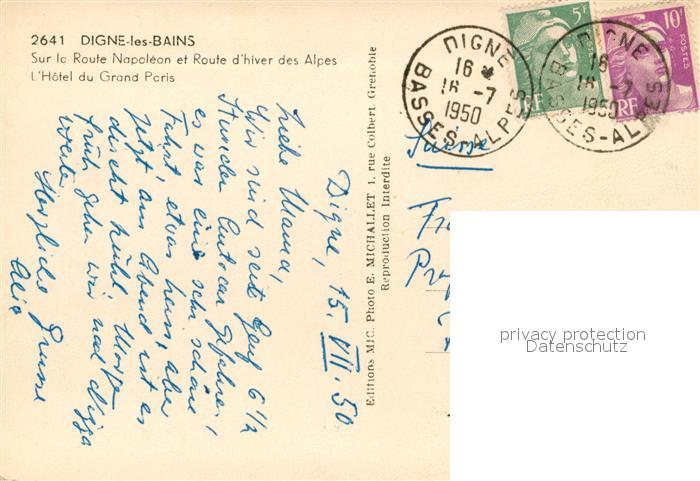 2641 DIGNE-les-BAINS
Sur la Route Napoléon et Route d'hiver des Alpes
L'Hôtel du Grand Paris
Digne, 15. VII. 50
Liebe Mama,
Wir sind seit Genf 6 1/2
Stunden Autocar gefahren,
es war eine sehr schöne
Fahrt, etwas heiss, aber
jetzt am Abend ist es
direkt kühl. Morgen
früh gehen wir nach Nizza
weiter.
Herzliche Grüsse
Editions MIC. Photo E. MICHALLET 1, rue Colbert, Grenoble
Reproduction Interdite
DIGNE
16
16-7
1950
BASSES-ALPES
5F
RF
DIGNE
16
16-7
1950
BASSES-ALPES
10F
POSTES
RF
Suisse
privacy protection
Datenschutz